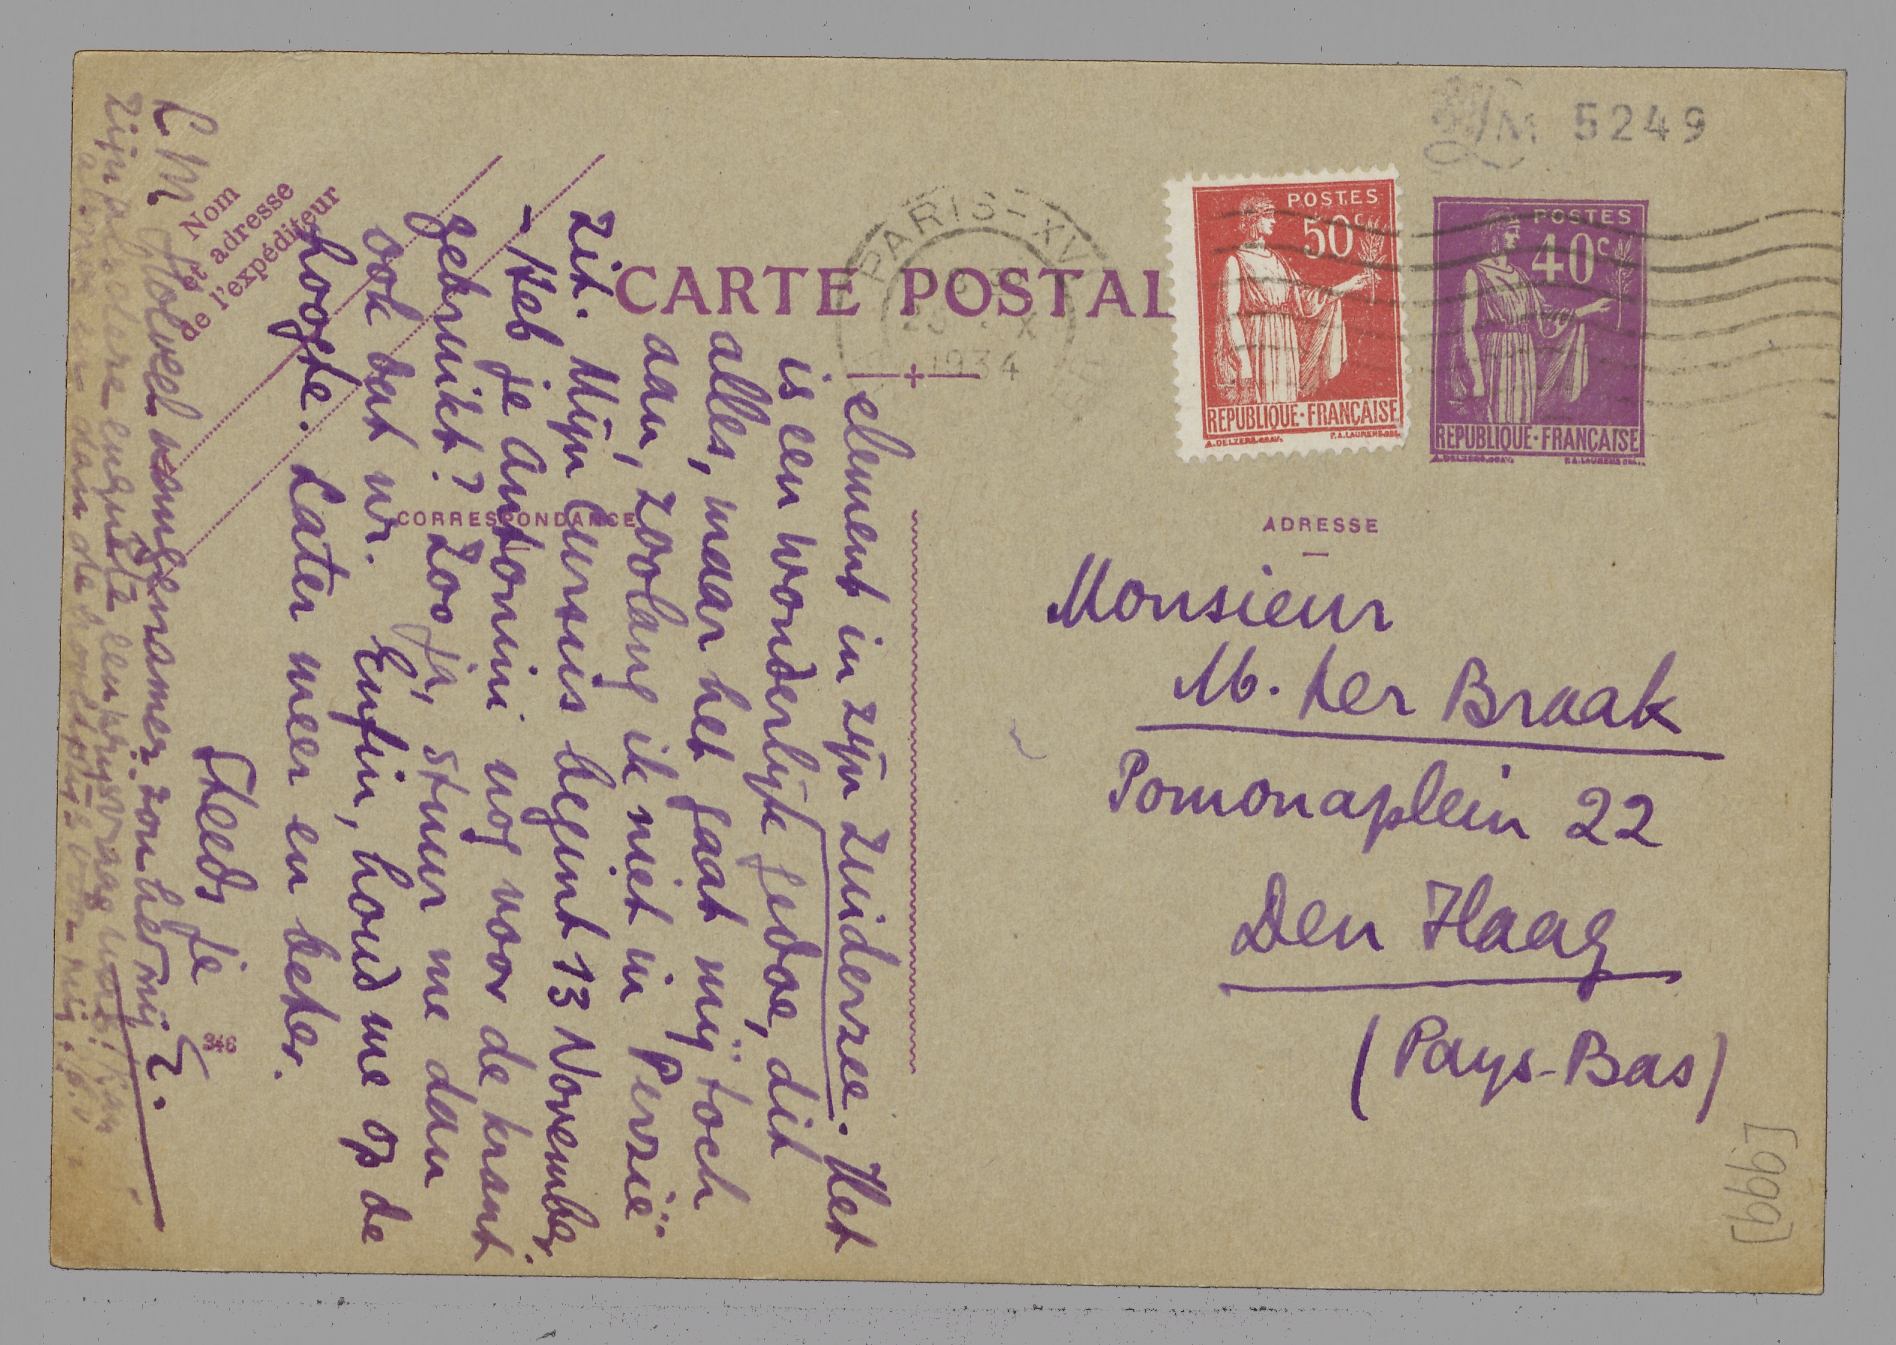 5249
PARIS-XV
X
1934
POSTES
50c
REPUBLIQUE-FRANÇAISE
POSTES
40c
REPUBLIQUE-FRANÇAISE
CARTE POSTAL
Nom
et adresse
de l'expéditeur
CORRESPONDANCE
ADRESSE
Monsieur
M. ter Braak
Pomonaplein 22
Den Haag
(Pays-Bas)
[666]
346
element in zijn Zuiderzee. Het
is een wonderlijke gedoe, dit
alles, maar het gaat mij toch
aan, zoolang ik niet in Perzië
zit. Mijn Cursus begint 13 November.
- Heb je Antonini nog voor de krant
gebruikt? Zoo ja, stuur me dan
ook dat nr. Enfin, houd me op de
hoogte. Later meer en beter.
Steeds je
E.
zijn
enquête
dan de